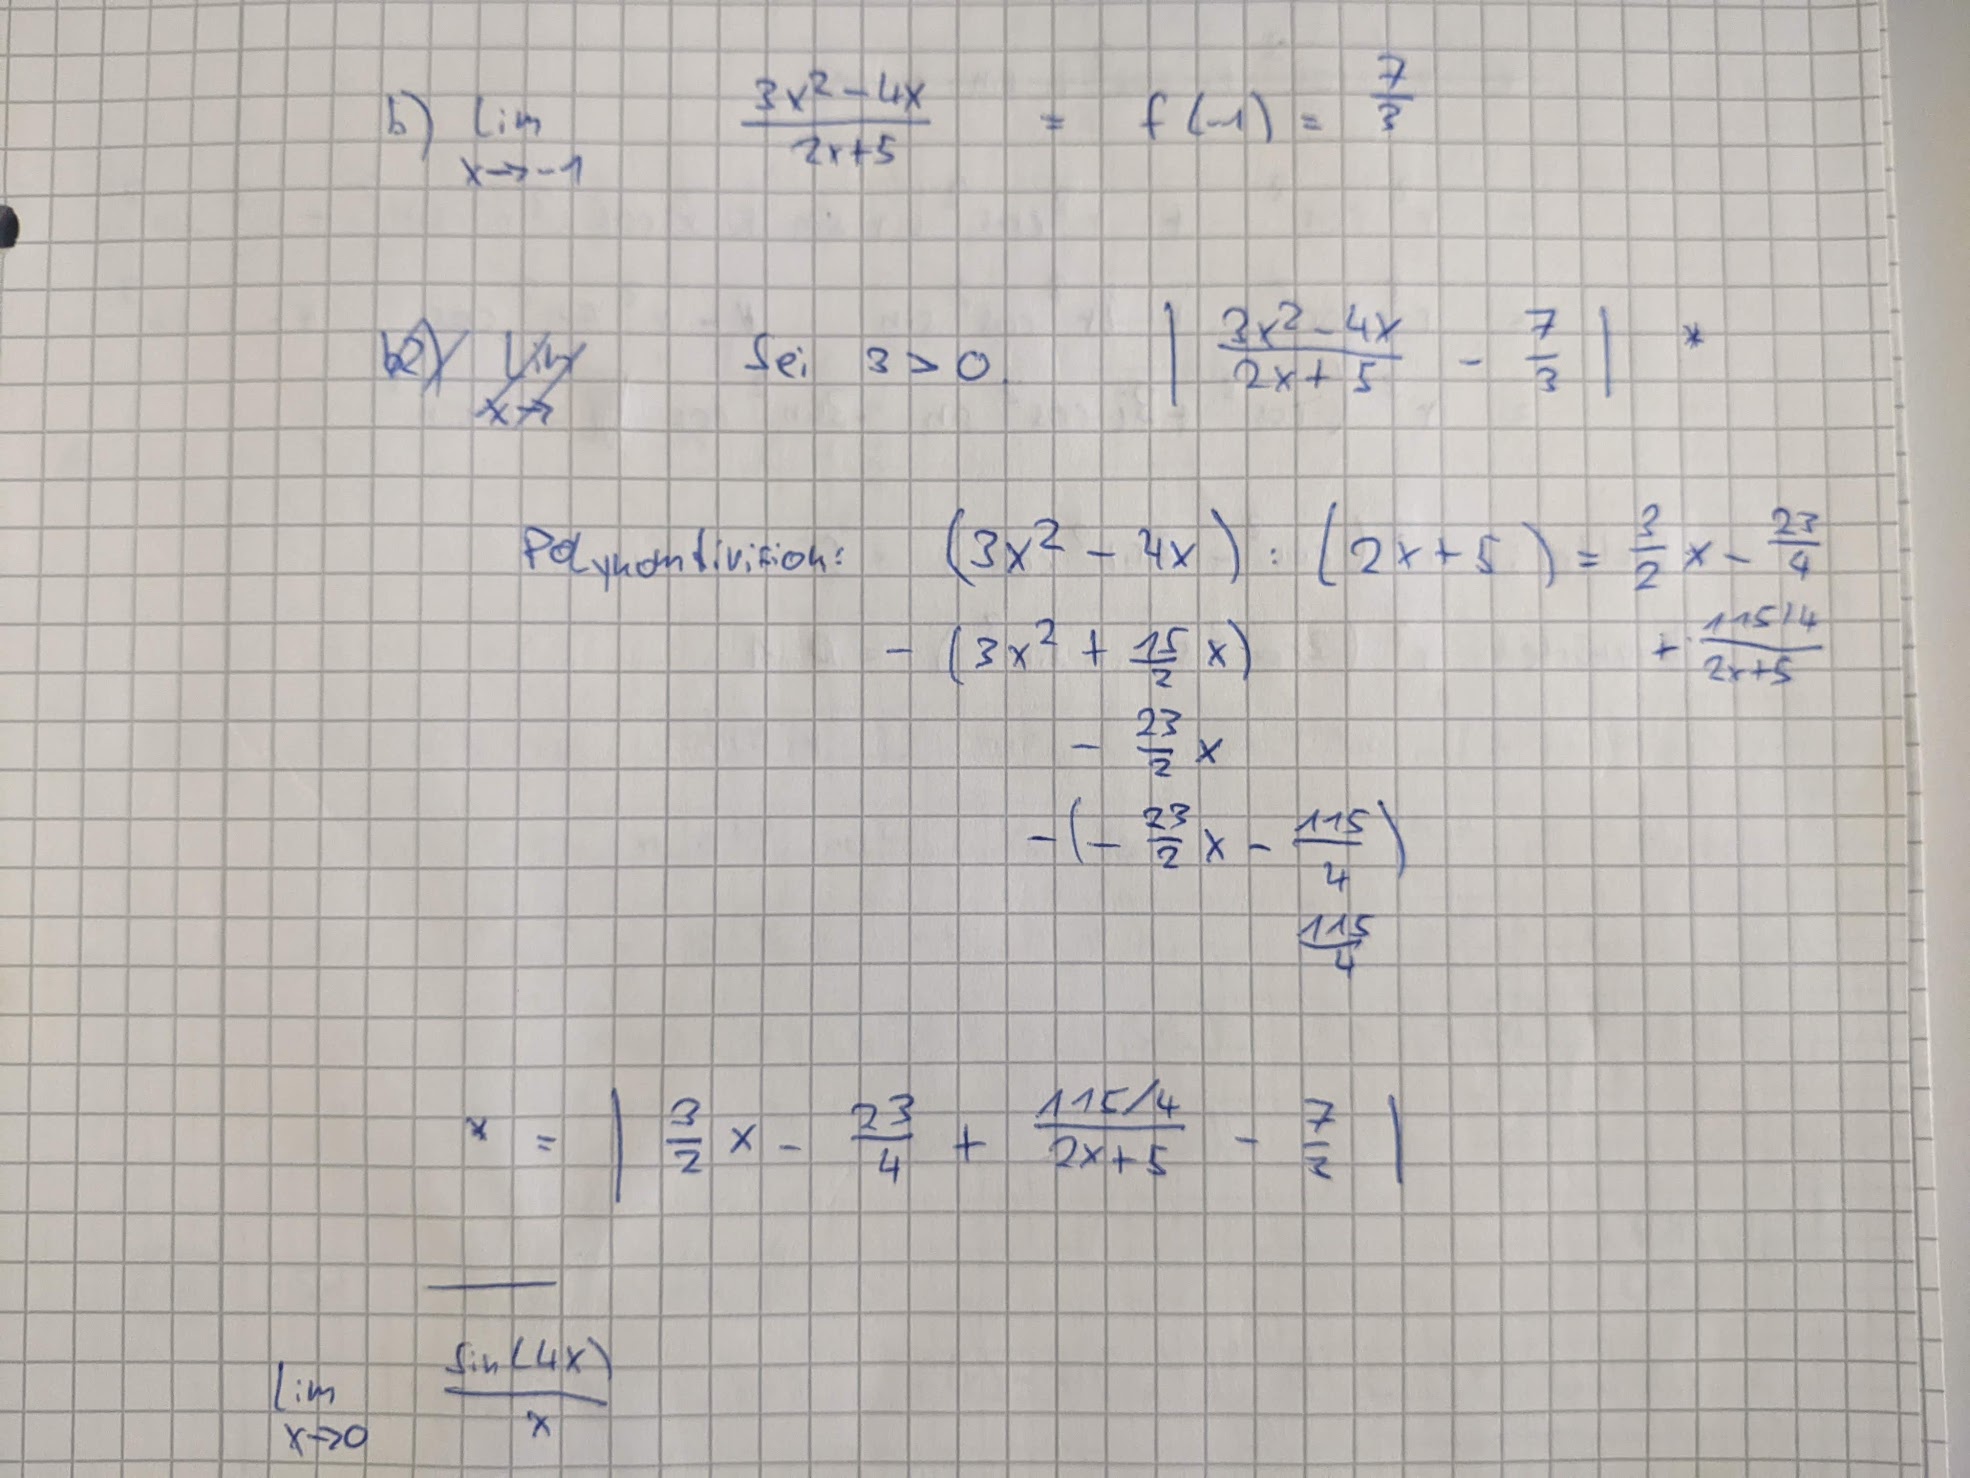 b) lim x→-1 (3x² - 4x)/(2x+5) = f(-1) = 7/3
Sei ε > 0. | (3x² - 4x)/(2x+5) - 7/3 | *
Polynomdivision: (3x² - 4x) : (2x+5) = 3/2 x - 23/4
- (3x² + 15/2 x) + (115/4)/(2x+5)
- 23/2 x
-(- 23/2 x - 115/4)
115/4
* = | 3/2 x - 23/4 + (115/4)/(2x+5) - 7/3 |
lim x→0 sin(4x)/x